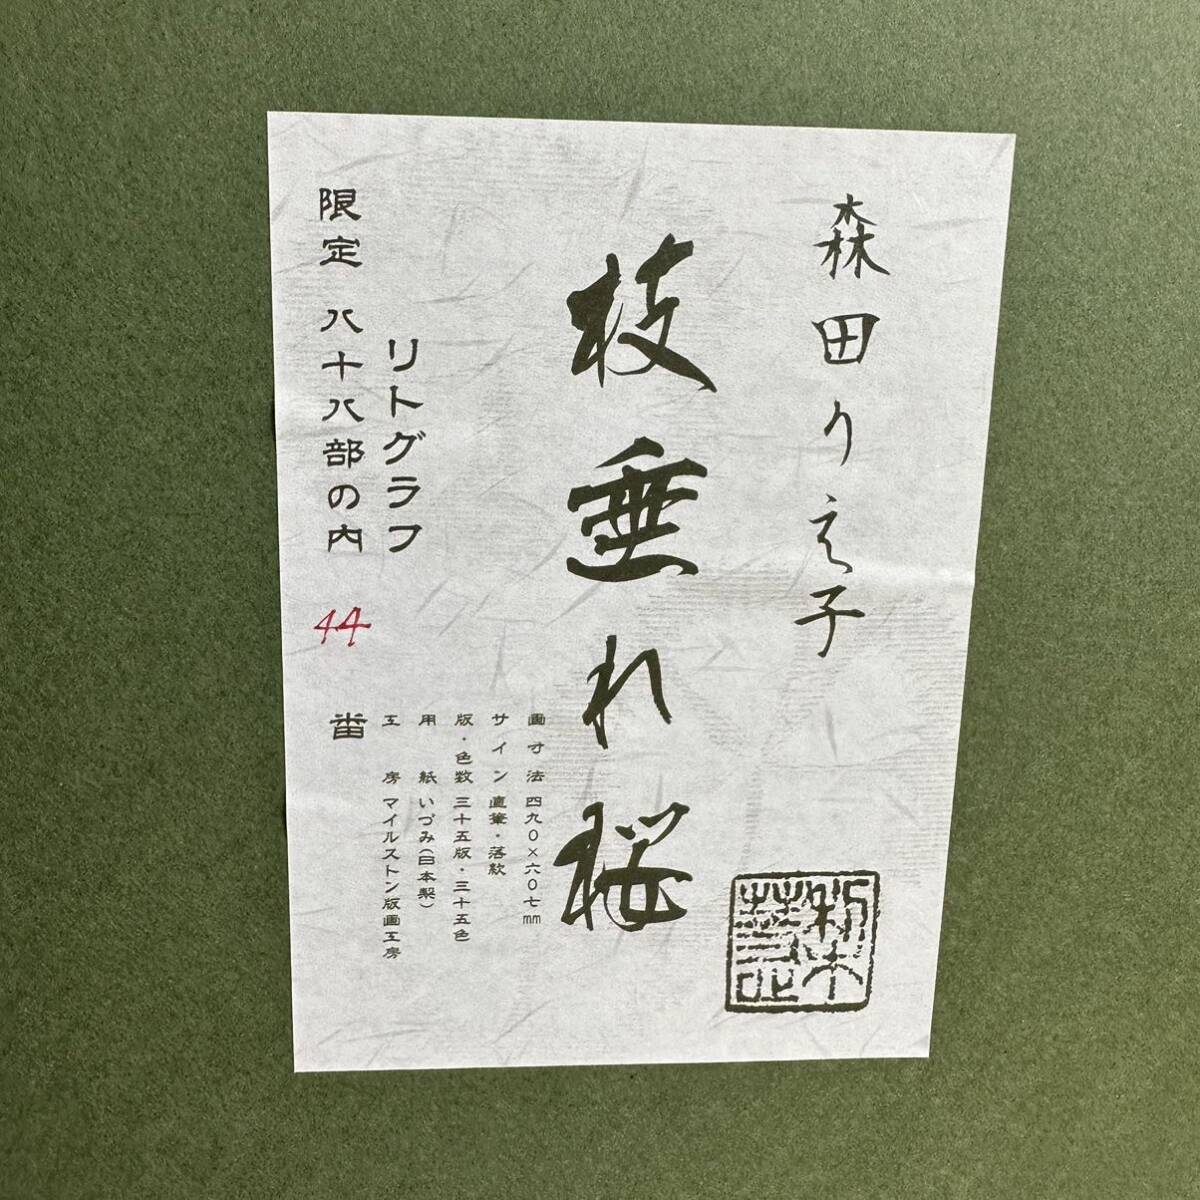 森田りえ子
枝垂れ桜
画寸法 四九〇×六〇七mm
サイン 直筆・落款
版・色数 三十五版・三十五色
用紙 いづみ(日本製)
工房 マイルストン版画工房
リトグラフ
限定 八十八部の内 44 番